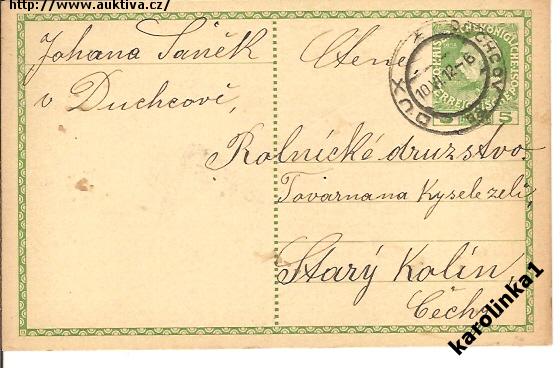 http://www.auktiva.cz/
Johana Saněk
v Duchcově,
Ctěné
DUX DUCHCOV
10 12-6
5 5
Rolnické družstvo
Továrna na Kyselé zelí,
Starý Kolín
Čechy
karolinka1